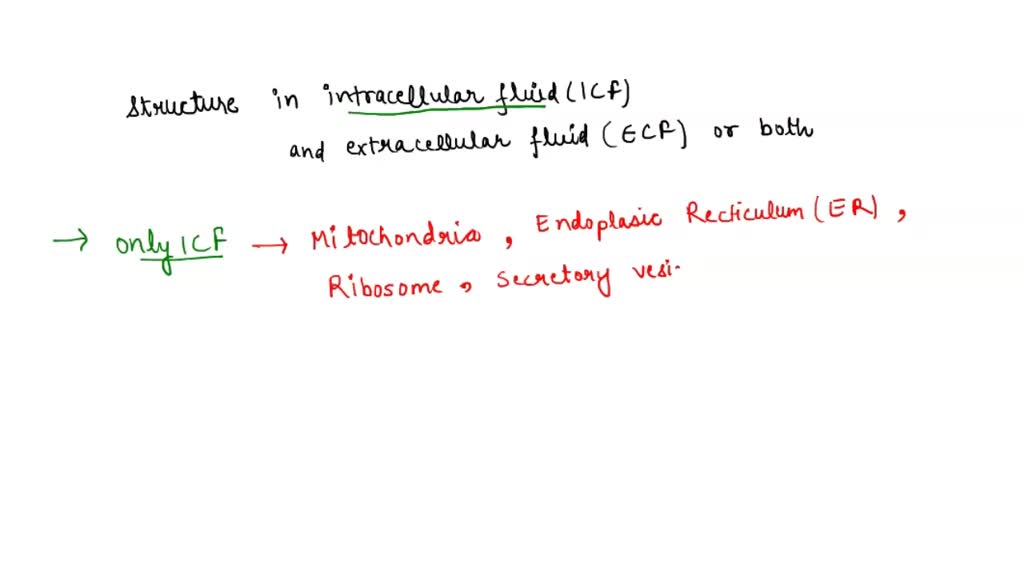 structure in intracellular fluid (ICF)
and extracellular fluid (ECF) or both
→ only ICF → Mitochondria, Endoplasic Recticulum (ER),
Ribosome, secretory vesi